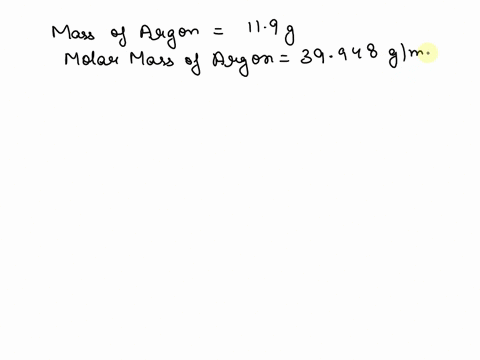 Mass of Argon = 11.9 g
Molar Mass of Argon = 39.948 g/m.